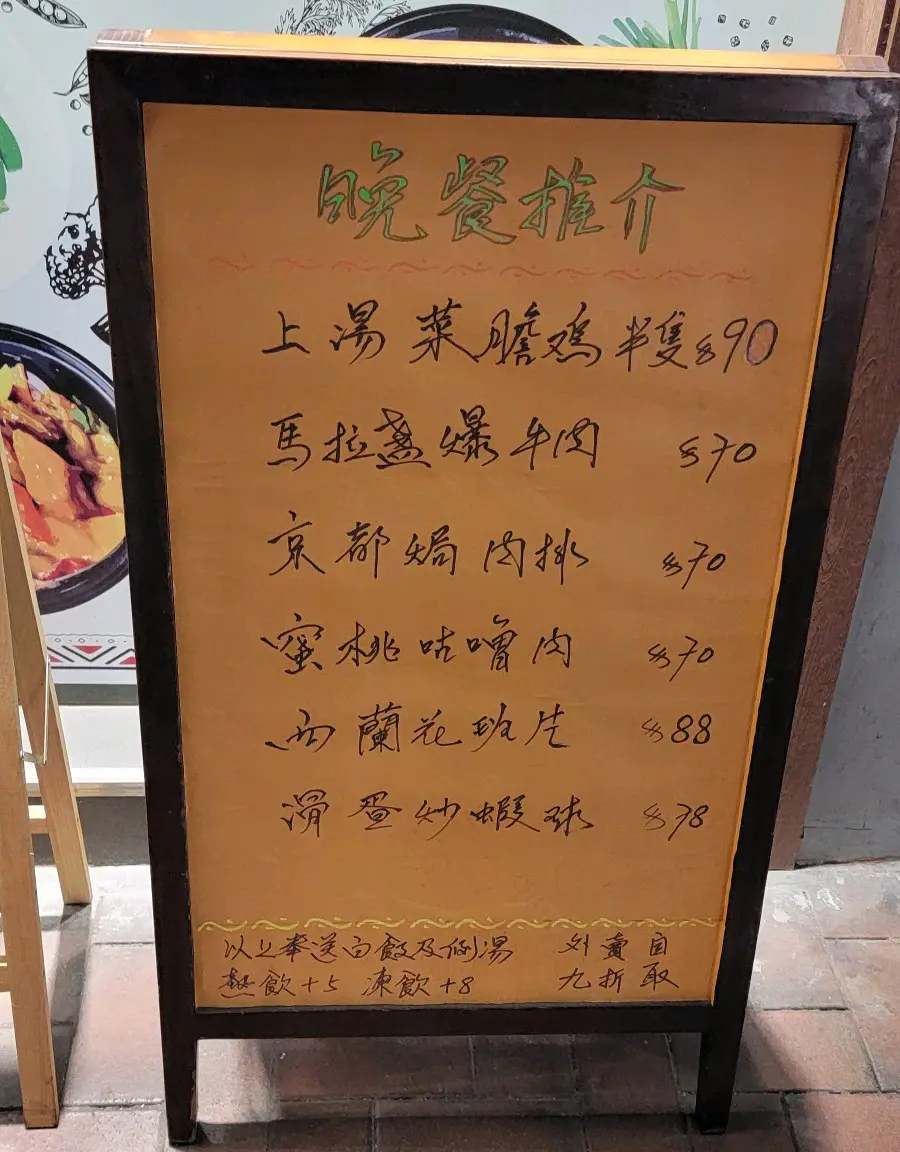 晚餐推介
上湯菜膽鸡半隻$90
馬拉盞爆牛肉 $70
京都焗肉排 $70
蜜桃咕嚕肉 $70
西蘭花班片 $88
滑蛋炒蝦球 $78
以上奉送白飯及例湯
熱飲+5 凍飲+8
外賣自
九折取